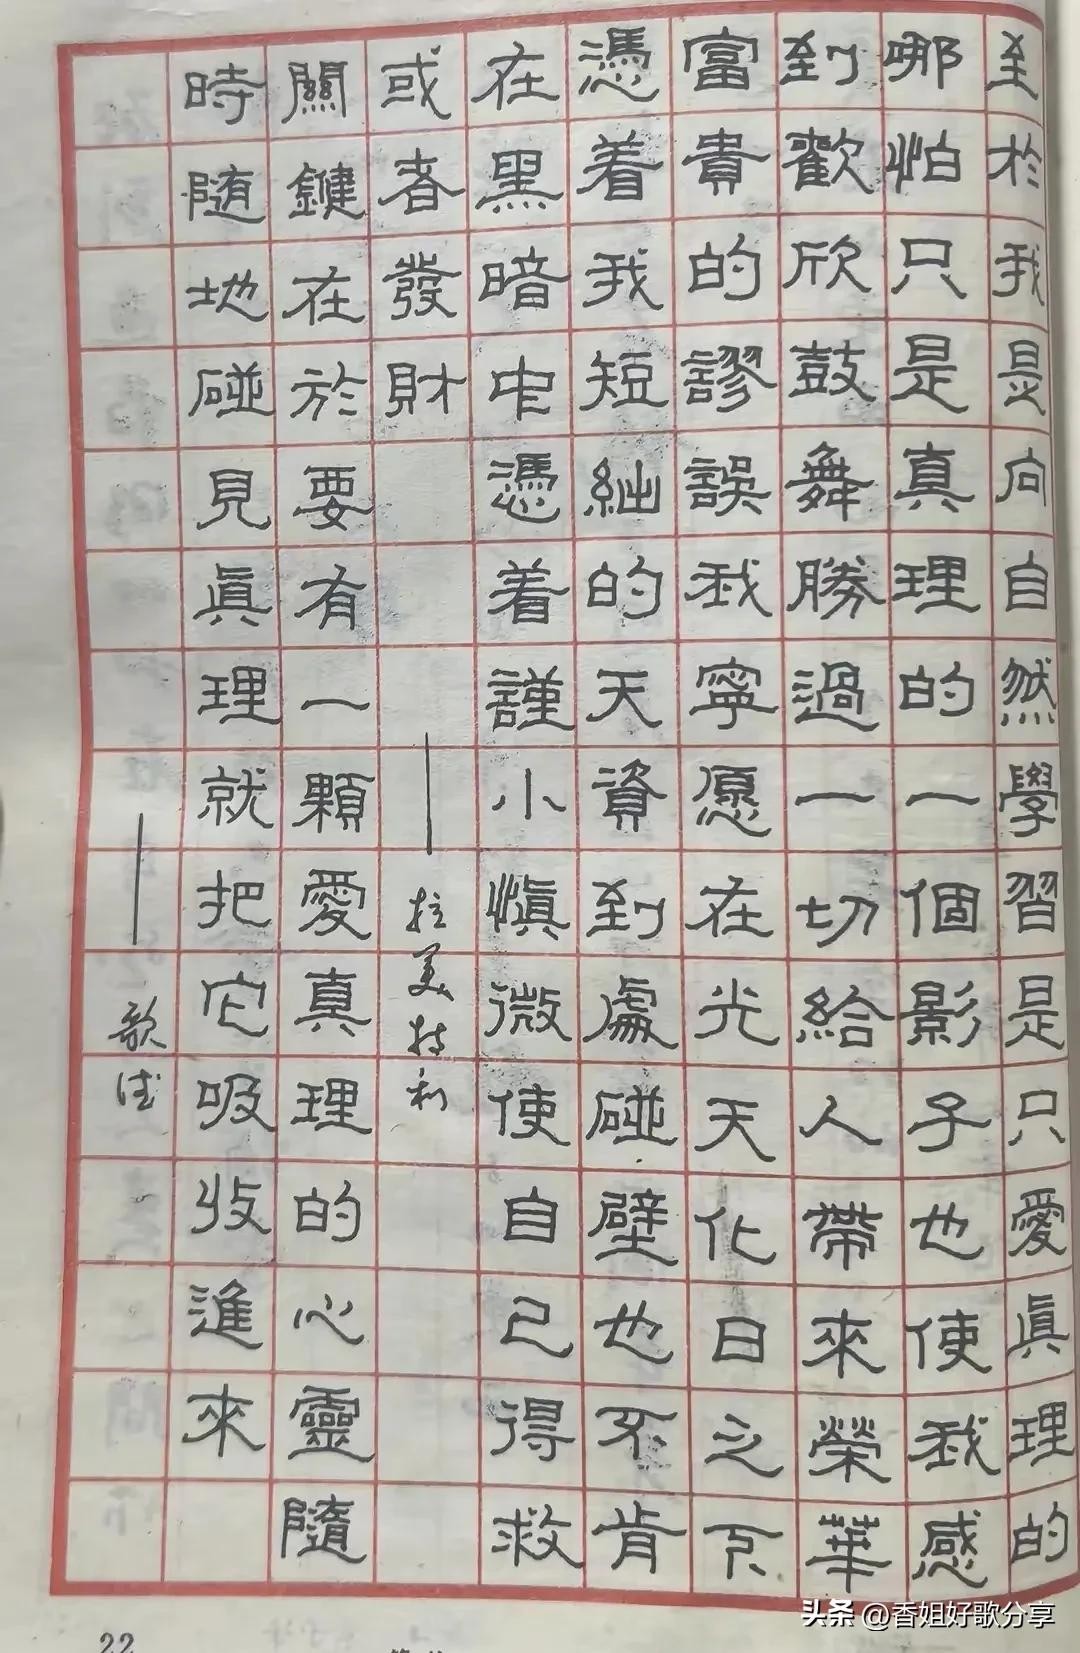 至於我是向自然學習是只愛眞理的
哪怕只是真理的一個影子也使我感
到歡欣鼓舞勝過一切給人帶來榮華
富貴的謬誤我寧愿在光天化日之下
憑着我短絀的天資到處碰壁也不肯
在黑暗中憑着謹小慎微使自己得救
或者發財
——拉美特利
關鍵在於要有一顆愛真理的心靈隨
時随地碰見眞理就把它吸收進來
——歌德
22
头条 @香姐好歌分享